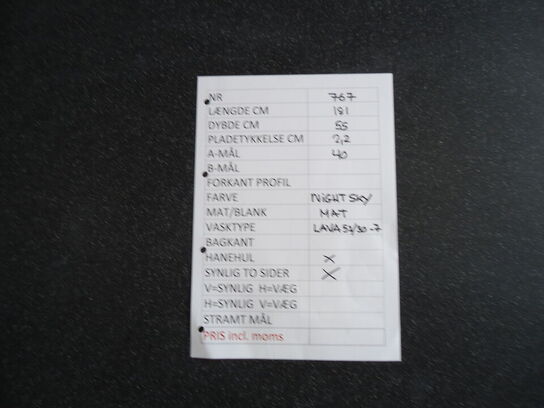 NR 767
LÆNGDE CM 181
DYBDE CM 55
PLADETYKKELSE CM 2,2
A-MÅL 40
B-MÅL
FORKANT PROFIL
FARVE NIGHT SKY
MAT/BLANK MAT
VASKTYPE LAVA 51/30-7
BAGKANT
HANEHUL X
SYNLIG TO SIDER X
V=SYNLIG H=VÆG
H=SYNLIG V=VÆG
STRAMT MÅL
PRIS incl. moms